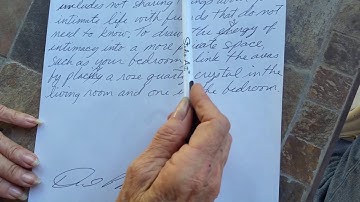 includes not sharing
intimate life with friends that do not
need to know. To draw the energy of
intimacy into a more private space,
such as your bedroom, link the areas
by placing a rose quartz crystal in the
living room and one in the bedroom